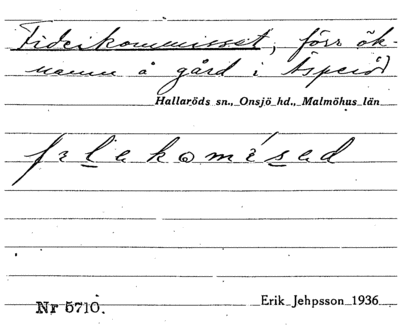 Fideikommisset, förr ök-
namn å gård i Äsperöd
Hallaröds sn., Onsjö hd., Malmöhus län
frlekomísed
Nr 5710.
Erik Jehpsson 1936